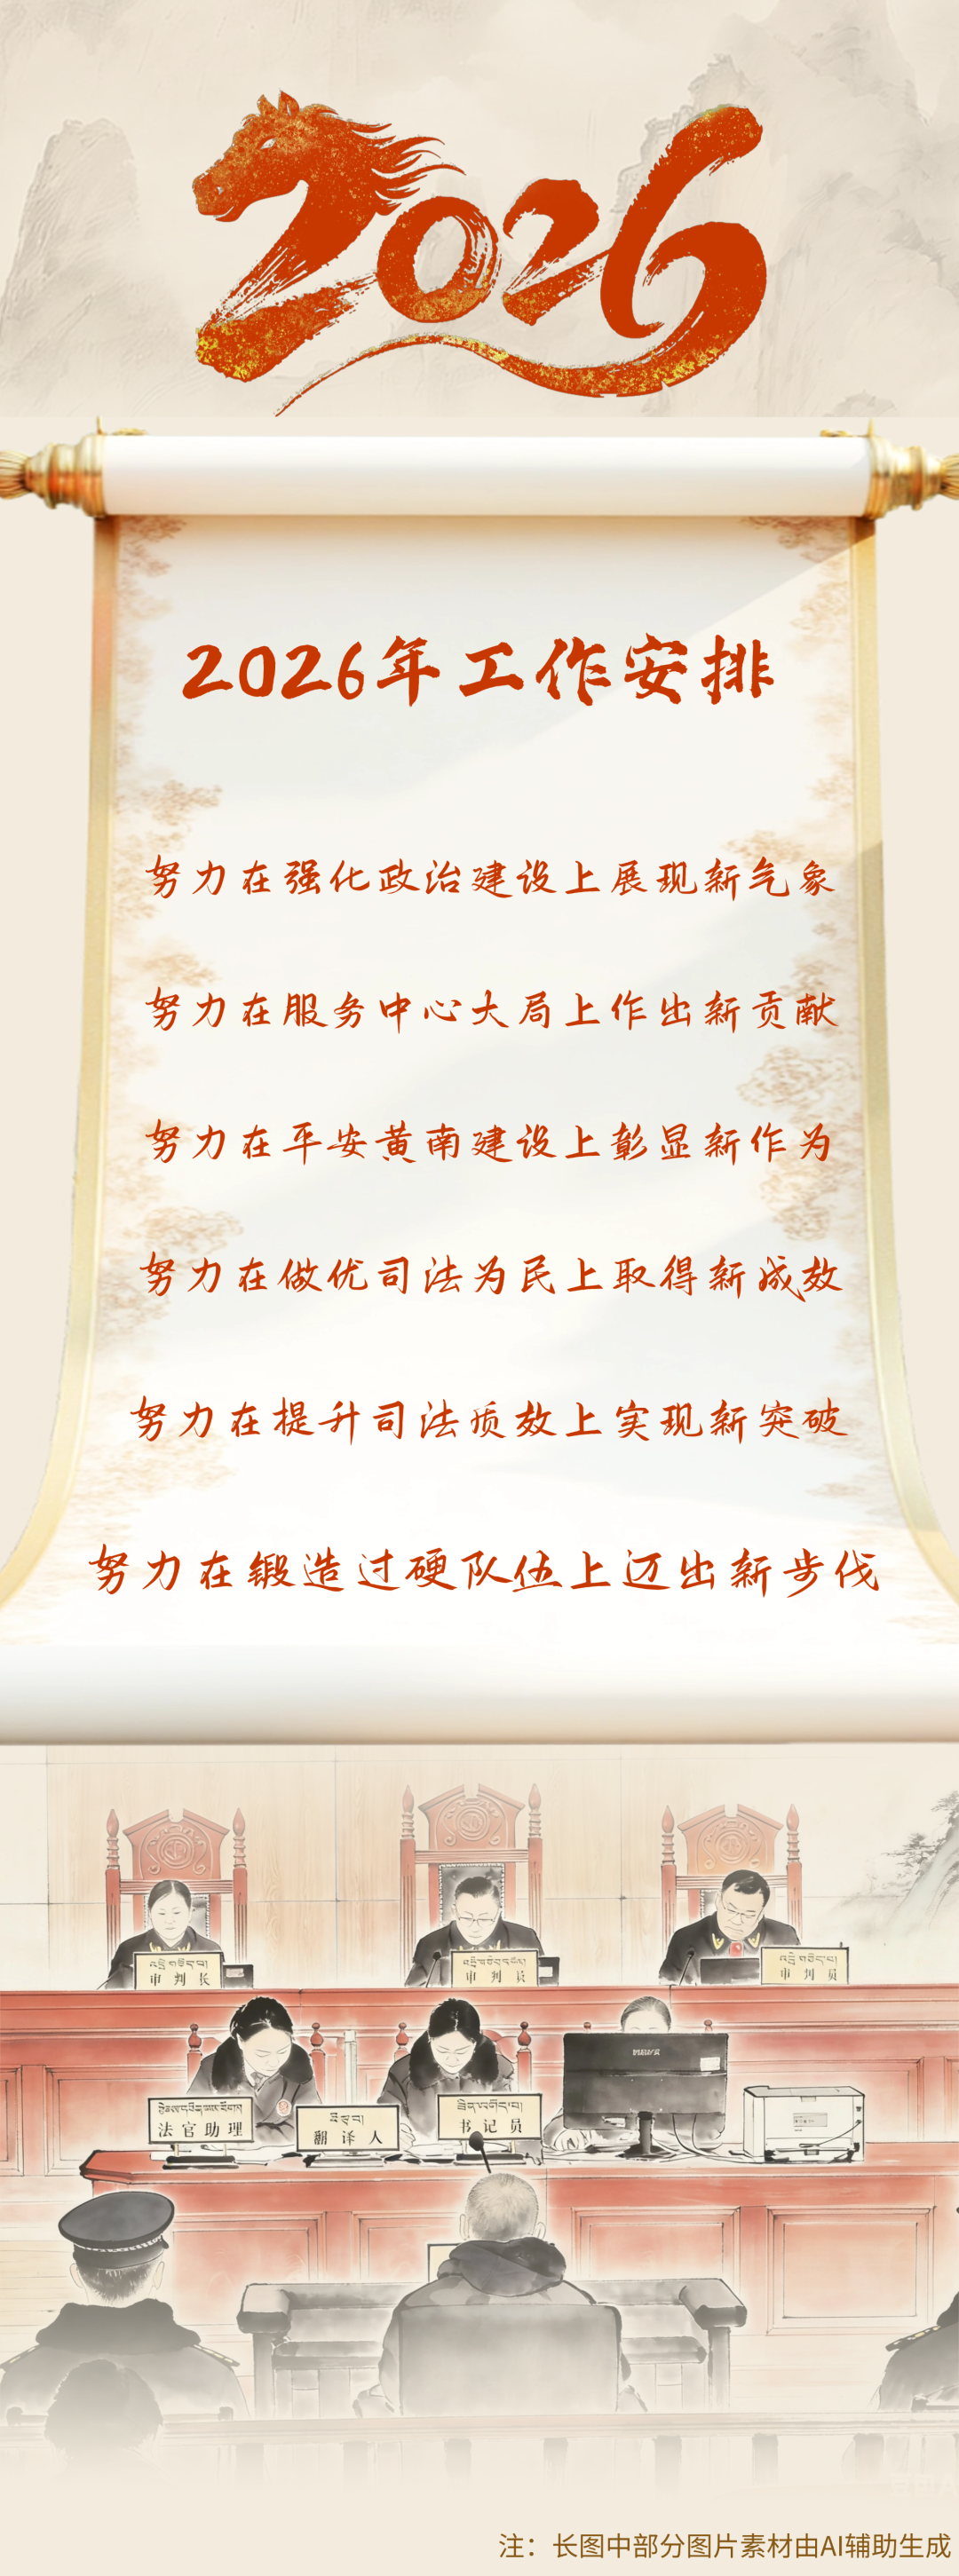 2026
2026年工作安排
努力在强化政治建设上展现新气象
努力在服务中心大局上作出新贡献
努力在平安黄南建设上彰显新作为
努力在做优司法为民上取得新成效
努力在提升司法质效上实现新突破
努力在锻造过硬队伍上迈出新步伐
审判长
审判员
审判员
法官助理
翻译人
书记员
注：长图中部分图片素材由AI辅助生成